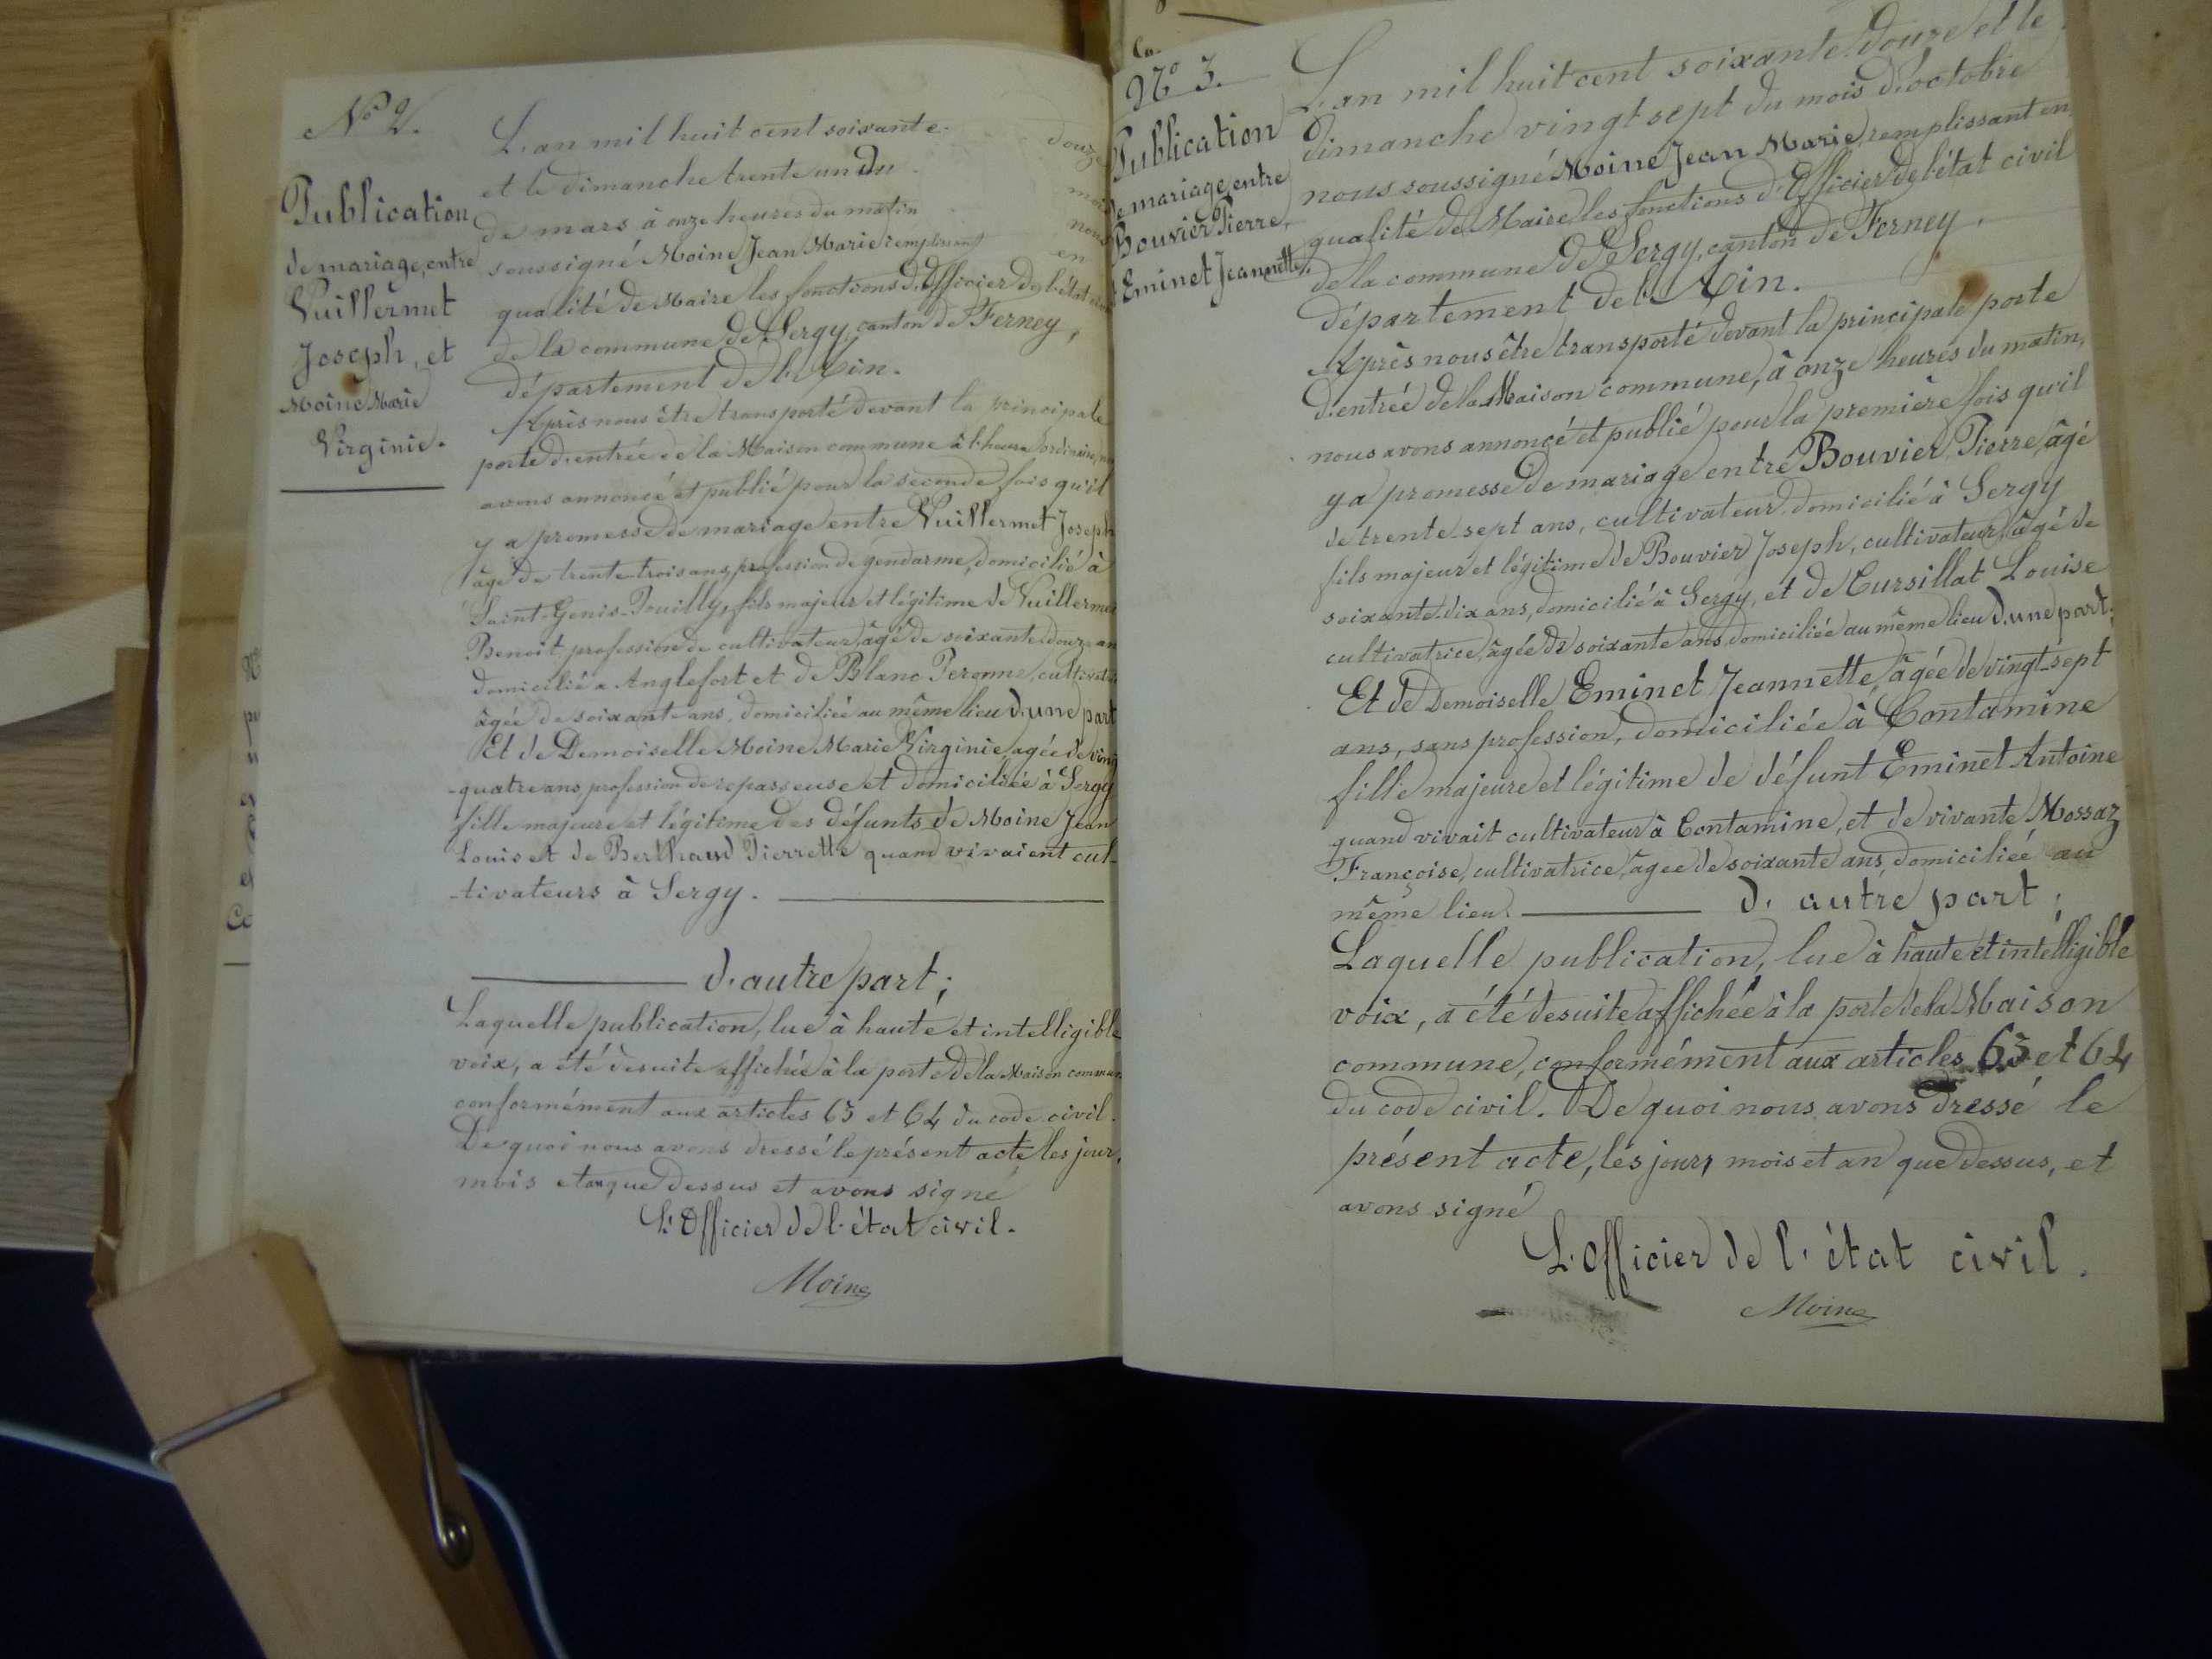 No 2.
Publication
de mariage, entre
Vuillermet
Joseph, et
Moine Marie
Virginie.
L'an mil huit cent soixante-douze
et le dimanche trente un du
de mars à onze heures du matin nous
soussigné Moine Jean Marie remplissant en
qualité de Maire les fonctions d'Officier de l'état
de la commune de Sergy, canton de Ferney,
département de l'Ain.
Après nous être transporté devant la principale
porte d'entrée de la Maison commune à l'heure ordinaire,
avons annoncé et publié pour la seconde fois qu'il
y a promesse de mariage entre Vuillermet Joseph
âgé de trente-trois ans, profession de gendarme, domicilié à
Saint-Genis-Pouilly, fils majeur et légitime de Vuillermet
Benoit profession de cultivateur, âgé de soixante-douze an
domicilié a Anglefort et de Blanc Peronne,
âgée de soixante ans, domiciliée au même lieu d'une part
Et de Demoiselle Moine Marie Virginie, agée de vingt
-quatre ans, profession de repasseuse et domiciliée à Sergy
fille majeure et légitime des défunts de Moine Jean
Louis et de Berthaud Pierrette quand vivaient cul-
-tivateurs à Sergy.
d'autre part;
Laquelle publication, lue à haute et intelligible
voix, a été desuite affichée à la porte de la Maison commun
conformément aux articles 63 et 64 du code civil.
De quoi nous avons dressé le présent acte les jour,
mois et an que dessus et avons signé
L'Officier de l'état civil.
Moine
No 3.
Publication
de mariage, entre
Bouvier Pierre,
Eminet Jeannette.
L'an mil huit cent soixante-douze et le
dimanche vingt sept du mois d'octobre
nous soussigné Moine Jean Marie, remplissant en
qualité de Maire les fonctions d'Officier de l'état civil
de la commune de Sergy, canton de Ferney,
département de l'Ain.
Après nous être transporté devant la principale porte
d'entrée de la Maison commune, à onze heures du matin,
nous avons annoncé et publié pour la première fois qu'il
y a promesse de mariage entre Bouvier, Pierre, âgé
de trente-sept ans, cultivateur, domicilié à Sergy
fils majeur et légitime de Bouvier Joseph, cultivateur, âgé de
soixante-dix ans, domicilié à Sergy, et de Cursillat Louise
cultivatrice, âgée de soixante ans, domiciliée au même lieu d'une part;
Et de Demoiselle Eminet Jeannette, âgée de vingt-sept
ans, sans profession, domiciliée à Contamine
fille majeure et légitime de défunt Eminet Antoine
quand vivait cultivateur à Contamine, et de vivante Mossaz
Françoise, cultivatrice, âgée de soixante ans, domiciliée au
même lieu. d'autre part;
Laquelle publication, lue à haute et intelligible
voix, a été desuite affichée à la porte de la Maison
commune, conformément aux articles 63 et 64
du code civil. De quoi nous avons dressé le
présent acte, les jour, mois et an que dessus, et
avons signé
L'Officier de l'état civil.
Moine